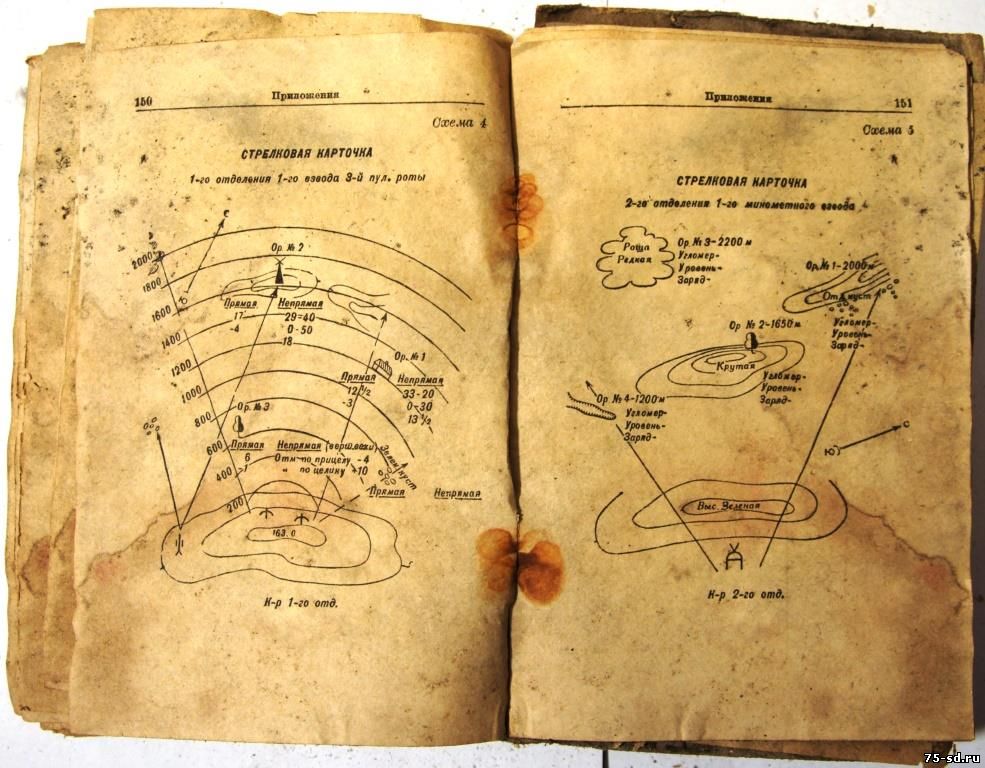 150
Приложения
Схема 4
СТРЕЛКОВАЯ КАРТОЧКА
1-го отделения 1-го взвода 3-й пул. роты
с
Ор. № 2
2000
1800
1600
1400
1200
1000
800
600
400
200
Прямая Непрямая
17 29-40
-4 0-50
18
Ор. № 1
Прямая Непрямая
12 1/2 33-20
-3 0-30
13 1/2
Ор. № 3
Прямая Непрямая (вертвехи)
6 Отм. по прицелу -4
-1 " по целику +10
Зелен. куст
Прямая Непрямая
163.0
К-р 1-го отд.
Приложения
151
Схема 5
СТРЕЛКОВАЯ КАРТОЧКА
2-го отделения 1-го минометного взвода
Роща
Редкая
Ор. № 3-2200 м
Угломер-
Уровень-
Заряд-
Ор. № 1-2000 м
Отд. куст
Угломер-
Уровень-
Заряд-
Ор. № 2-1650 м
Крутая
Угломер-
Уровень-
Заряд-
Ор. № 4-1200 м
Угломер-
Уровень-
Заряд-
с
ю
Выс. Зеленая
К-р 2-го отд.
75-sd.ru